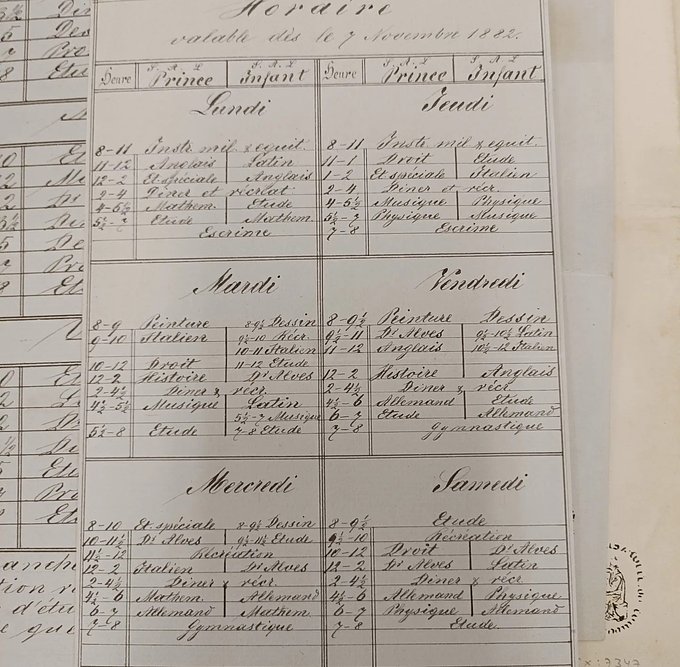 Horaire
valable dès le 7 Novembre 1882.
Heure S. A. R. Prince S. A. R. Infant Heure S. A. R. Prince S. A. R. Infant
Lundi
8-11 Instr. mil. & équit.
11-12 Anglais Latin
12-2 Et. spéciale Anglais
2-4 Dîner et récréat.
4-5½ Mathém. Etude
5½-7 Etude Mathém.
Escrime
Jeudi
8-11 Instr. mil. & équit.
11-1 Droit Etude
1-2 Et. spéciale Italien
2-4 Dîner et récr.
4-5½ Musique Physique
5½-7 Physique Musique
7-8 Escrime
Mardi
8-9 Peinture 8-9½ Dessin
9-10 Italien 9½-10 Récr.
10-11 Italien
10-12 Droit 11-12 Etude
12-2 Histoire Dr Alves
2-4½ Dîner & récr.
4½-5½ Musique Latin
5½-7 Musique
5½-8 Etude 7-8 Etude
Vendredi
8-9½ Peinture Dessin
9½-11 Dr Alves 9½-10½ Latin
11-12 Anglais 10½-12 Italien
12-2 Histoire Anglais
2-4½ Dîner & récr.
4½-6 Allemand Etude
6-7 Etude Allemand
7-8 Gymnastique
Mercredi
8-10 Et. spéciale 8-9½ Dessin
10-11½ Dr Alves 9½-11½ Etude
11½-12 Récréation
12-2 Italien Dr Alves
2-4½ Dîner & récr.
4½-6 Mathém. Allemand
6-7 Allemand Mathém.
7-8 Gymnastique
Samedi
8-9½ Etude
9½-10 Récréation
10-12 Droit Dr Alves
12-2 Dr Alves Latin
2-4½ Dîner & récr.
4½-6 Allemand Physique
6-7 Physique Allemand
7-8 Etude